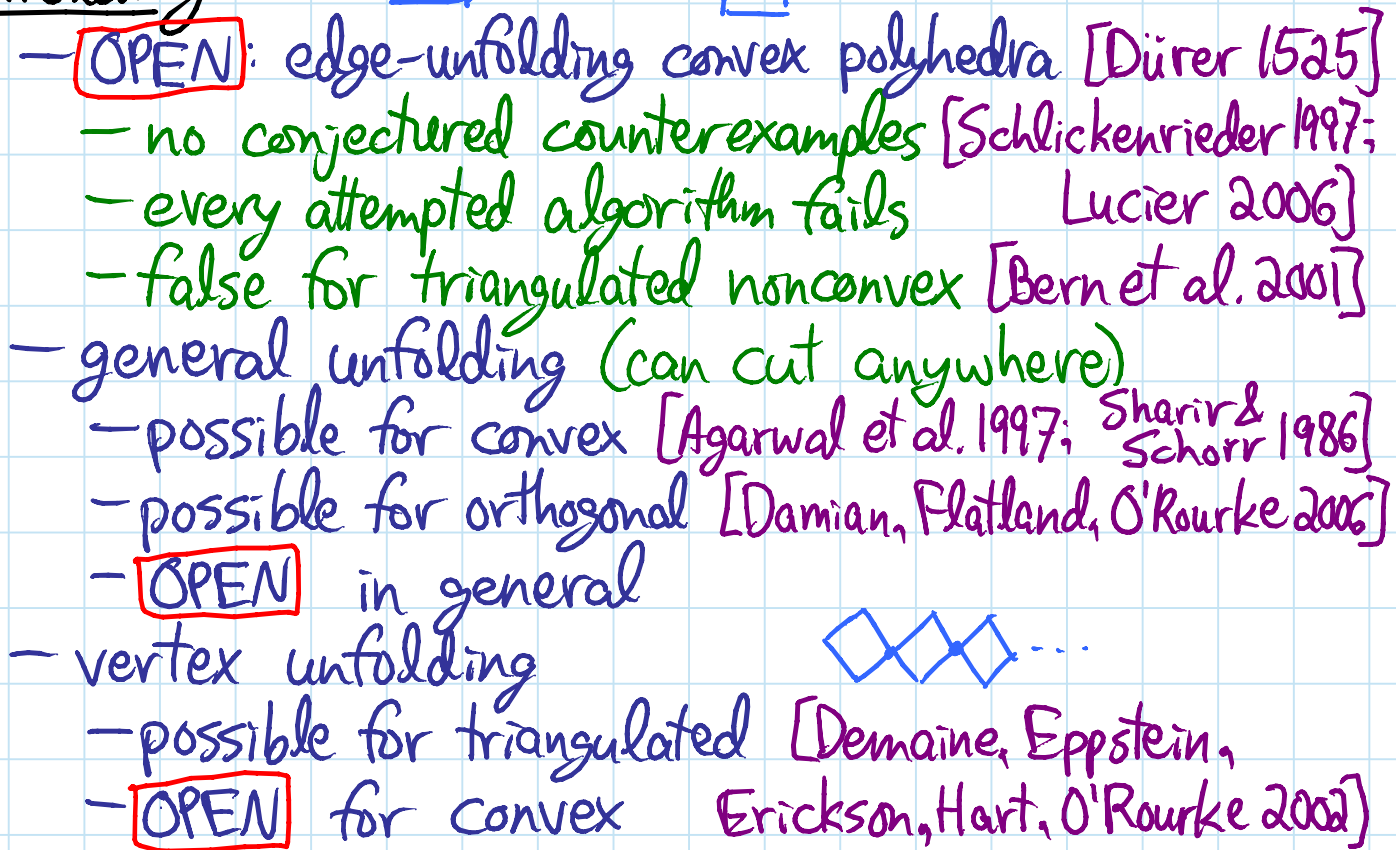 — OPEN: edge-unfolding convex polyhedra [Dürer 1525]
— no conjectured counterexamples [Schlickenrieder 1997;
— every attempted algorithm fails Lucier 2006]
— false for triangulated nonconvex [Bern et al. 2001]
— general unfolding (can cut anywhere)
— possible for convex [Agarwal et al. 1997; Sharir & Schorr 1986]
— possible for orthogonal [Damian, Flatland, O'Rourke 2006]
— OPEN in general
— vertex unfolding
— possible for triangulated [Demaine, Eppstein,
— OPEN for convex Erickson, Hart, O'Rourke 2002]